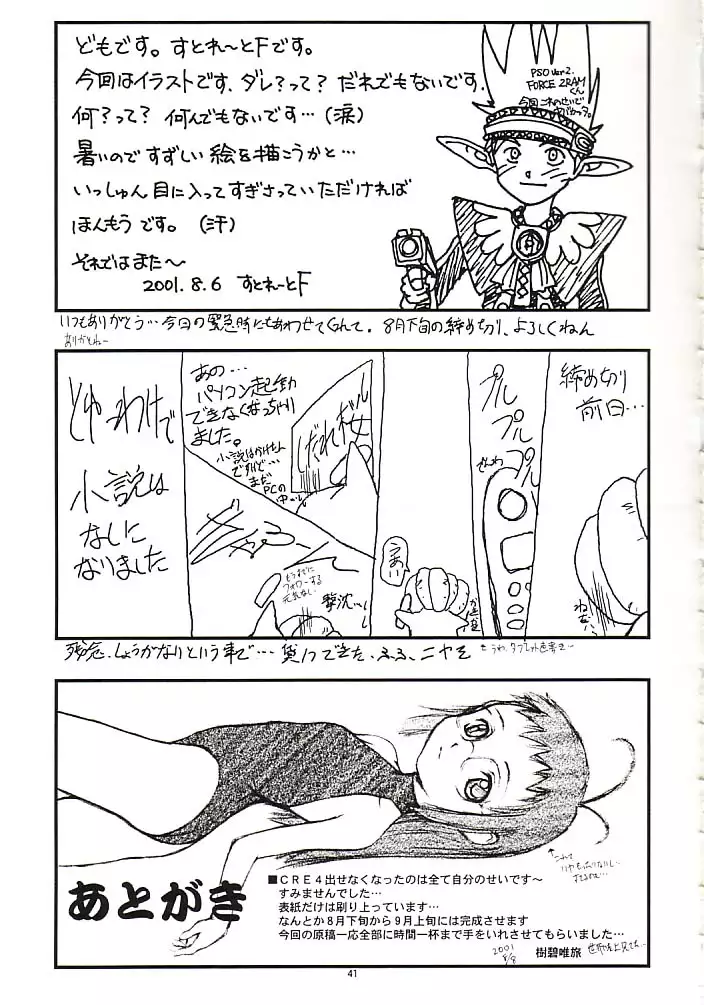 どもです。すとれーとFです。
今回はイラストです、ダレ?って? だれでもないです.
何?って? 何んでもないです…(涙)
暑いので すずしい絵を描こうかと…
いっしゅん目に入ってすぎさっていただければ
ほんもうです。(汗)
それではまた〜
2001.8.6 すとれーとF
PSO ver2.
FORCE 2RAM
くん
今回これのせいで
ヤバかった。
いつもありがとう…今回の緊急時にもあわせてくれて。8月下旬の締め切り、よろしくねん
締め切り
前日…
プル
プル
プル
でんわ
あの…
パソコン起動
できなくなっちゃり
ました。
小説はかけたん
ですけど…
まだ
PCの
中…
しだれ桜
もうすでに
フォローする
元気ない
撃沈…
とゆーわけで
小説は
なしに
なりました
残念、しょうがないという事で… 貸1つできた、ふふ、ニヤそ
あとがき
■CRE4出せなくなったのは全て自分のせいです〜
すみませんでした…
表紙だけは刷り上っています…
なんとか8月下旬から9月上旬には完成させます
今回の原稿一応全部に時間一杯まで手をいれさせてもらいました…
2001
8/8
樹碧唯旅
41